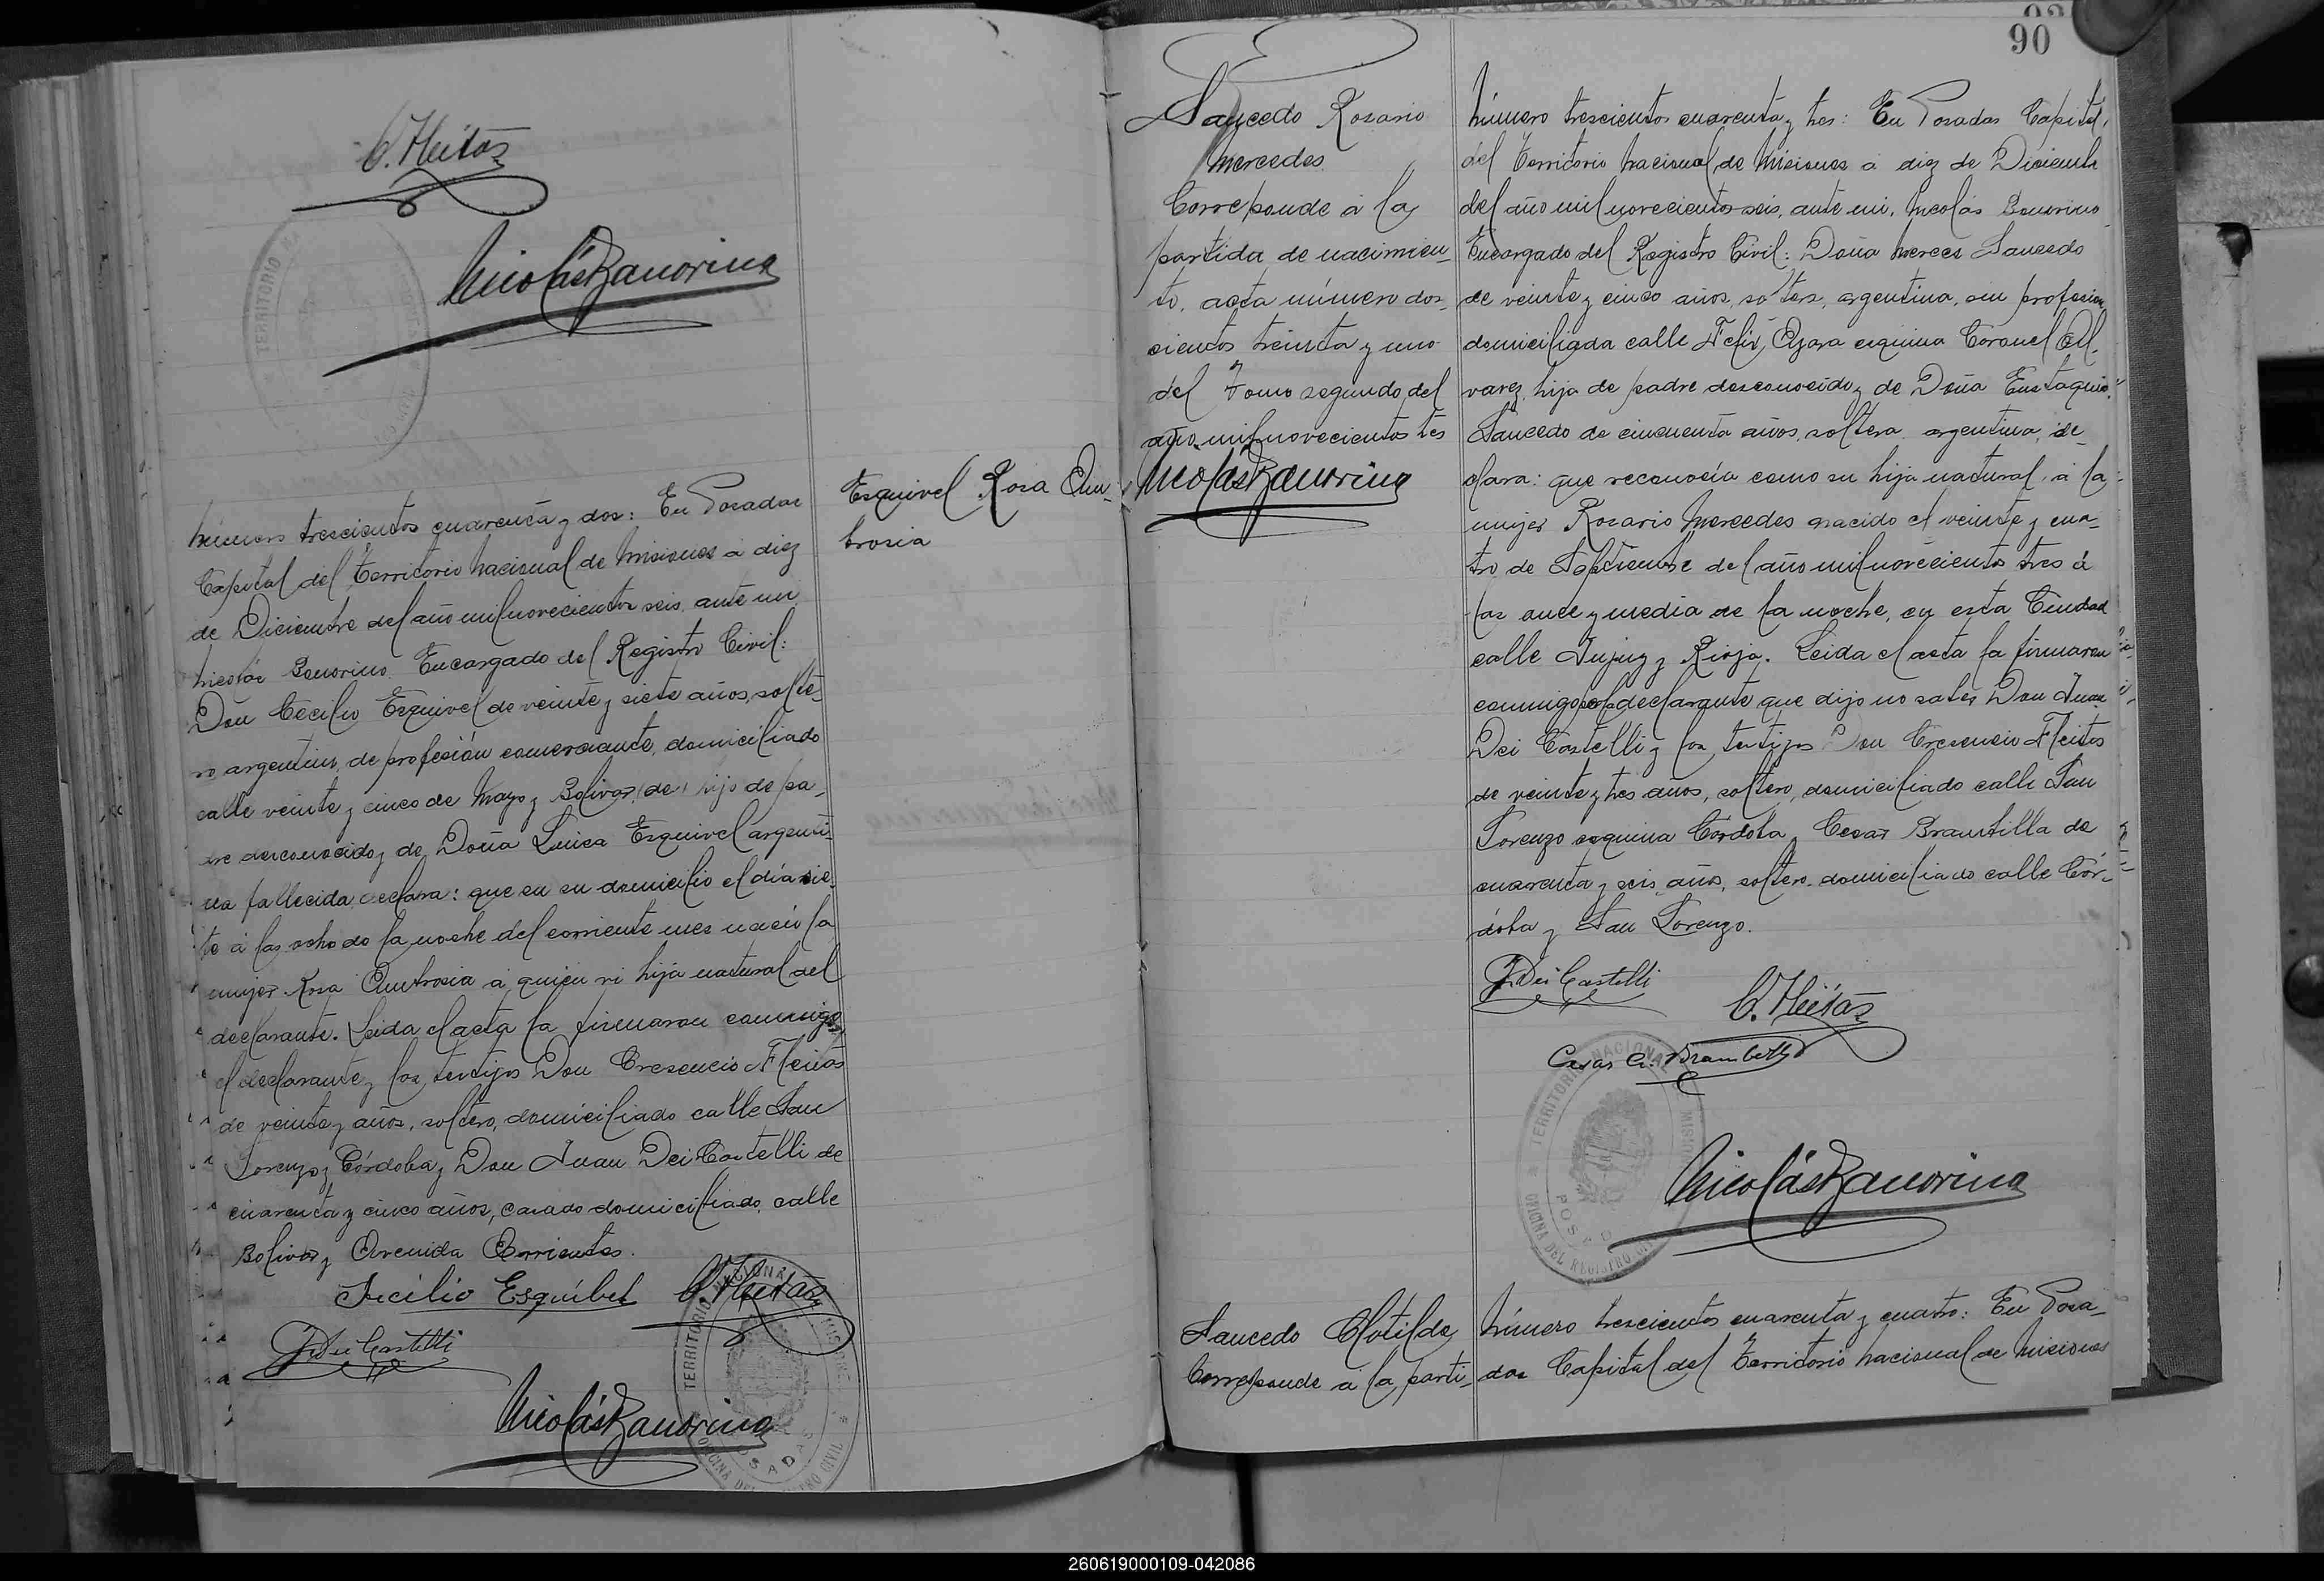 C. Fleitas
Nicolás Bonorino
TERRITORIO
Número trescientos cuarenta y dos: En Posadas
Capital del Territorio Nacional de Misiones á diez
de Diciembre del año mil novecientos seis, ante mi
Nicolás Bonorino Encargado del Registro Civil:
Don Cecilio Esquivel de veinte y siete años, solte-
ro argentino, de profesión comerciante, domiciliado
calle veinte y cinco de Mayo y Bolivar, (de) hijo de pa-
dre desconocido y de Doña Luisa Esquivel argenti-
na fallecida declara: que en su domicilio el día sie-
te á las ocho de la noche del corriente mes nació la
mujer Rosa Ambrosia á quien vi hija natural del
declarante. Leida el acta la firmaron conmigo,
el declarante y los testigos Don Cresencio Fleitas
de veinte y años, soltero, domiciliado calle San
Lorenzo y Córdoba y Don Juan Dei Castelli de
cuarenta y cinco años, casado domiciliado calle
Bolivar y Avenida Corrientes.
Secilio Esquíbel C. Fleitas
J. Dei Castelli
Nicolás Bonorino
TERRITORIO NACIONAL MISIONES
OFICINA DEL REGISTRO CIVIL
POSADAS
Esquivel Rosa Am-
brosia
90
Saucedo Rosario
Mercedes.
Corresponde á la
partida de nacimien-
to, acta número dos-
cientos treinta y uno
del Tomo segundo del
año mil novecientos tres
Nicolás Bonorino
Número trescientos cuarenta y tres: En Posadas Capital,
del Territorio Nacional de Misiones á diez de Diciembre
del año mil novecientos seis, ante mi, Nicolás Bonorino
Encargado del Registro Civil: Doña Merces Saucedo
de veinte y cinco años, soltera, argentina, sin profesion,
domiciliada calle Felix Azara esquina Coronel Al-
varez, hija de padre desconocido y de Doña Eustaquia
Saucedo de cincuenta años, soltera argentina, de-
clara: que reconocía como su hija natural, á la
mujer Rosario Mercedes nacido el veinte y cua-
tro de Septiembre del año mil novecientos tres á
las once y media de la noche, en esta Ciudad
calle Jujuy y Rioja. Leida el acta la firmaron
conmigo por la declarante que dijo no saber, Don Juan
Dei Castelli y los testigos Don Cresencio Fleitas
de veinte y tres años, soltero, domiciliado calle San
Lorenzo esquina Córdoba y Cesar Brambilla de
cuarenta y seis años, soltero domiciliado calle Cór-
doba y San Lorenzo.
J. Dei Castelli
C. Fleitas
Cesar A. Brambilla
TERRITORIO NACIONAL MISIONES
OFICINA DEL REGISTRO CIVIL
POSADAS
Nicolás Bonorino
Saucedo Clotilde
Corresponde á la parti-
Número trescientos cuarenta y cuatro: En Posa-
das Capital del Territorio Nacional de Misiones
260619000109-042086